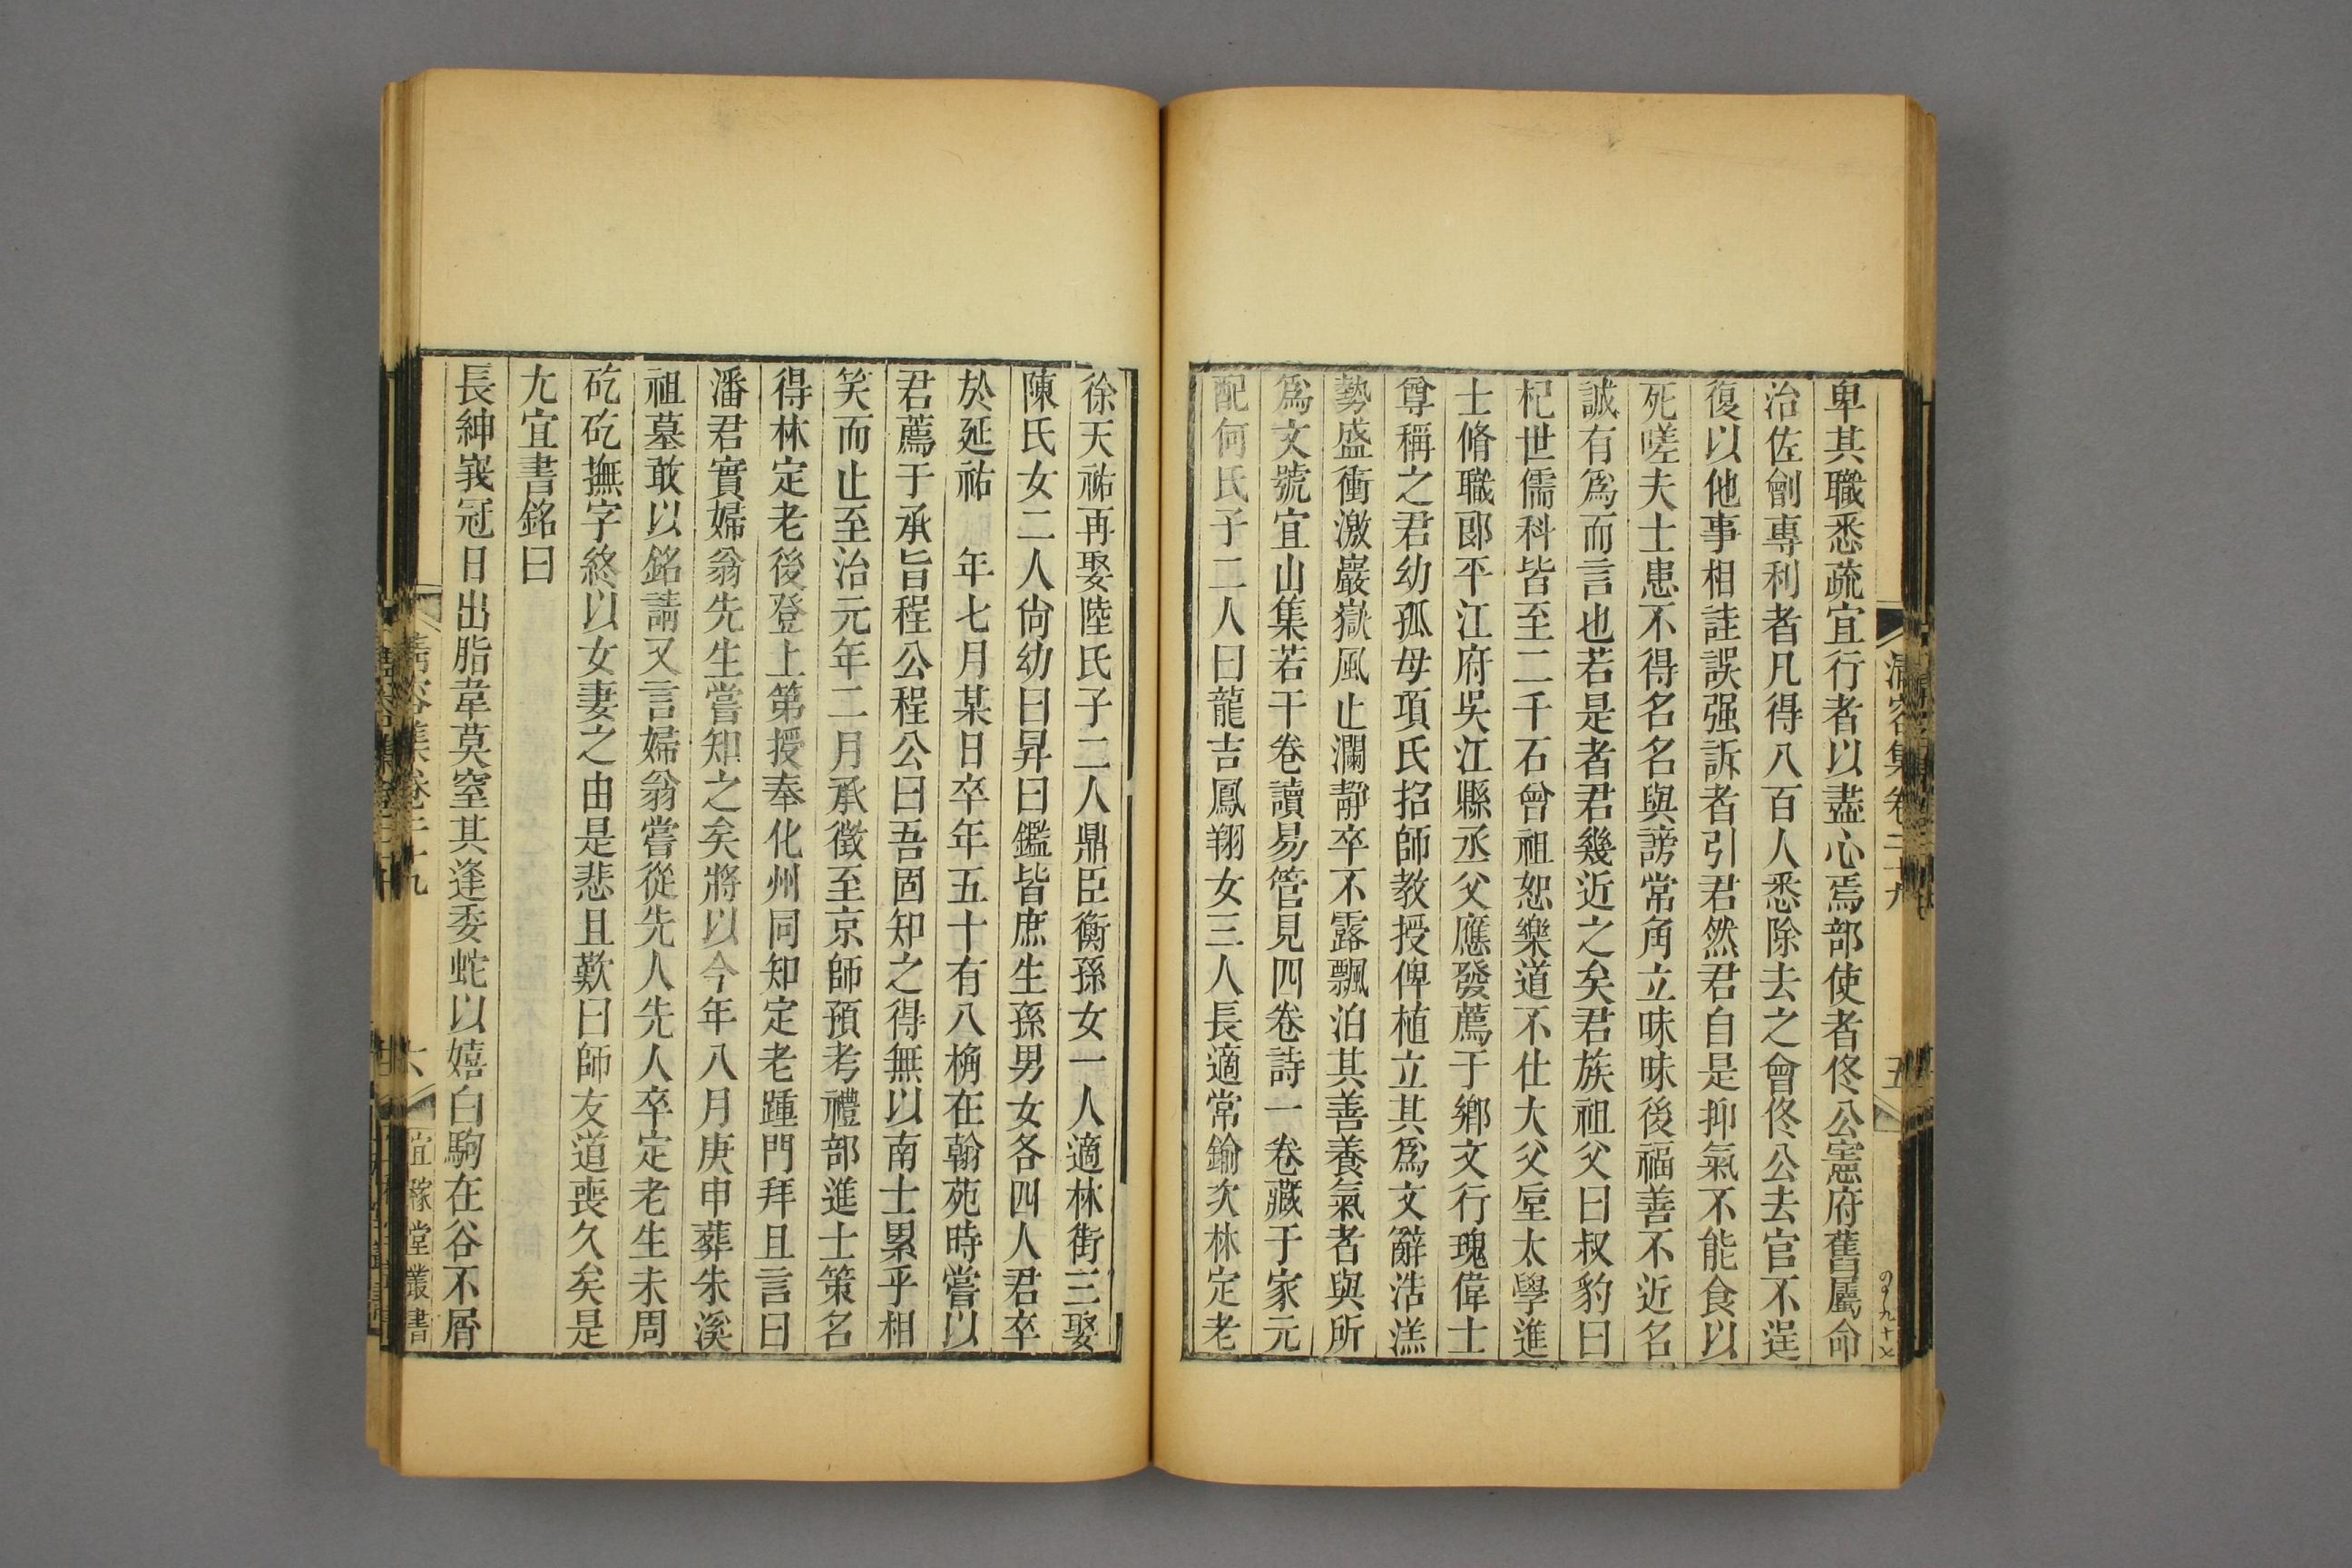 卑其職悉疏宜行者以盡心焉部使者佟公憲府舊屬命
治佐劊專利者凡得八百人悉除去之會佟公去官不逞
復以他事相詿誤强訴者引君然君自是抑氣不能食以
死嗟夫士患不得名名與謗常角立味味後福善不近名
誠有爲而言也若是者君幾近之矣君族祖父曰叔豹曰
杞世儒科皆至二千石曾祖恕樂道不仕大父垕太學進
士脩職郎平江府吳江縣丞父應發薦于鄉文行瑰偉士
尊稱之君幼孤母項氏招師教授俾植立其爲文辭浩漾
勢盛衝激巖嶽風止瀾靜卒不露飄泊其善養氣者與所
爲文號宜山集若干卷讀易管見四卷詩一卷藏于家元
配何氏子二人曰龍吉鳳翔女三人長適常鍮次林定老
徐天祐再娶陸氏子二人鼎臣衡孫女一人適林街三娶
陳氏女二人尙幼曰昇曰鑑皆庶生孫男女各四人君卒
於延祐 年七月某日卒年五十有八桷在翰苑時嘗以
君薦于承旨程公程公曰吾固知之得無以南士累乎相
笑而止至治元年二月承徵至京師預考禮部進士策名
得林定老後登上第授奉化州同知定老踵門拜且言曰
潘君實婦翁先生嘗知之矣將以今年八月庚申葬朱溪
祖墓敢以銘請又言婦翁嘗從先人先人卒定老生未周
矻矻撫字終以女妻之由是悲且歎曰師友道喪久矣是
尢宜書銘曰
長紳峩冠日出脂韋莫窒其逢委蛇以嬉白駒在谷不屑
清容集卷二十九
六
宜稼堂叢書